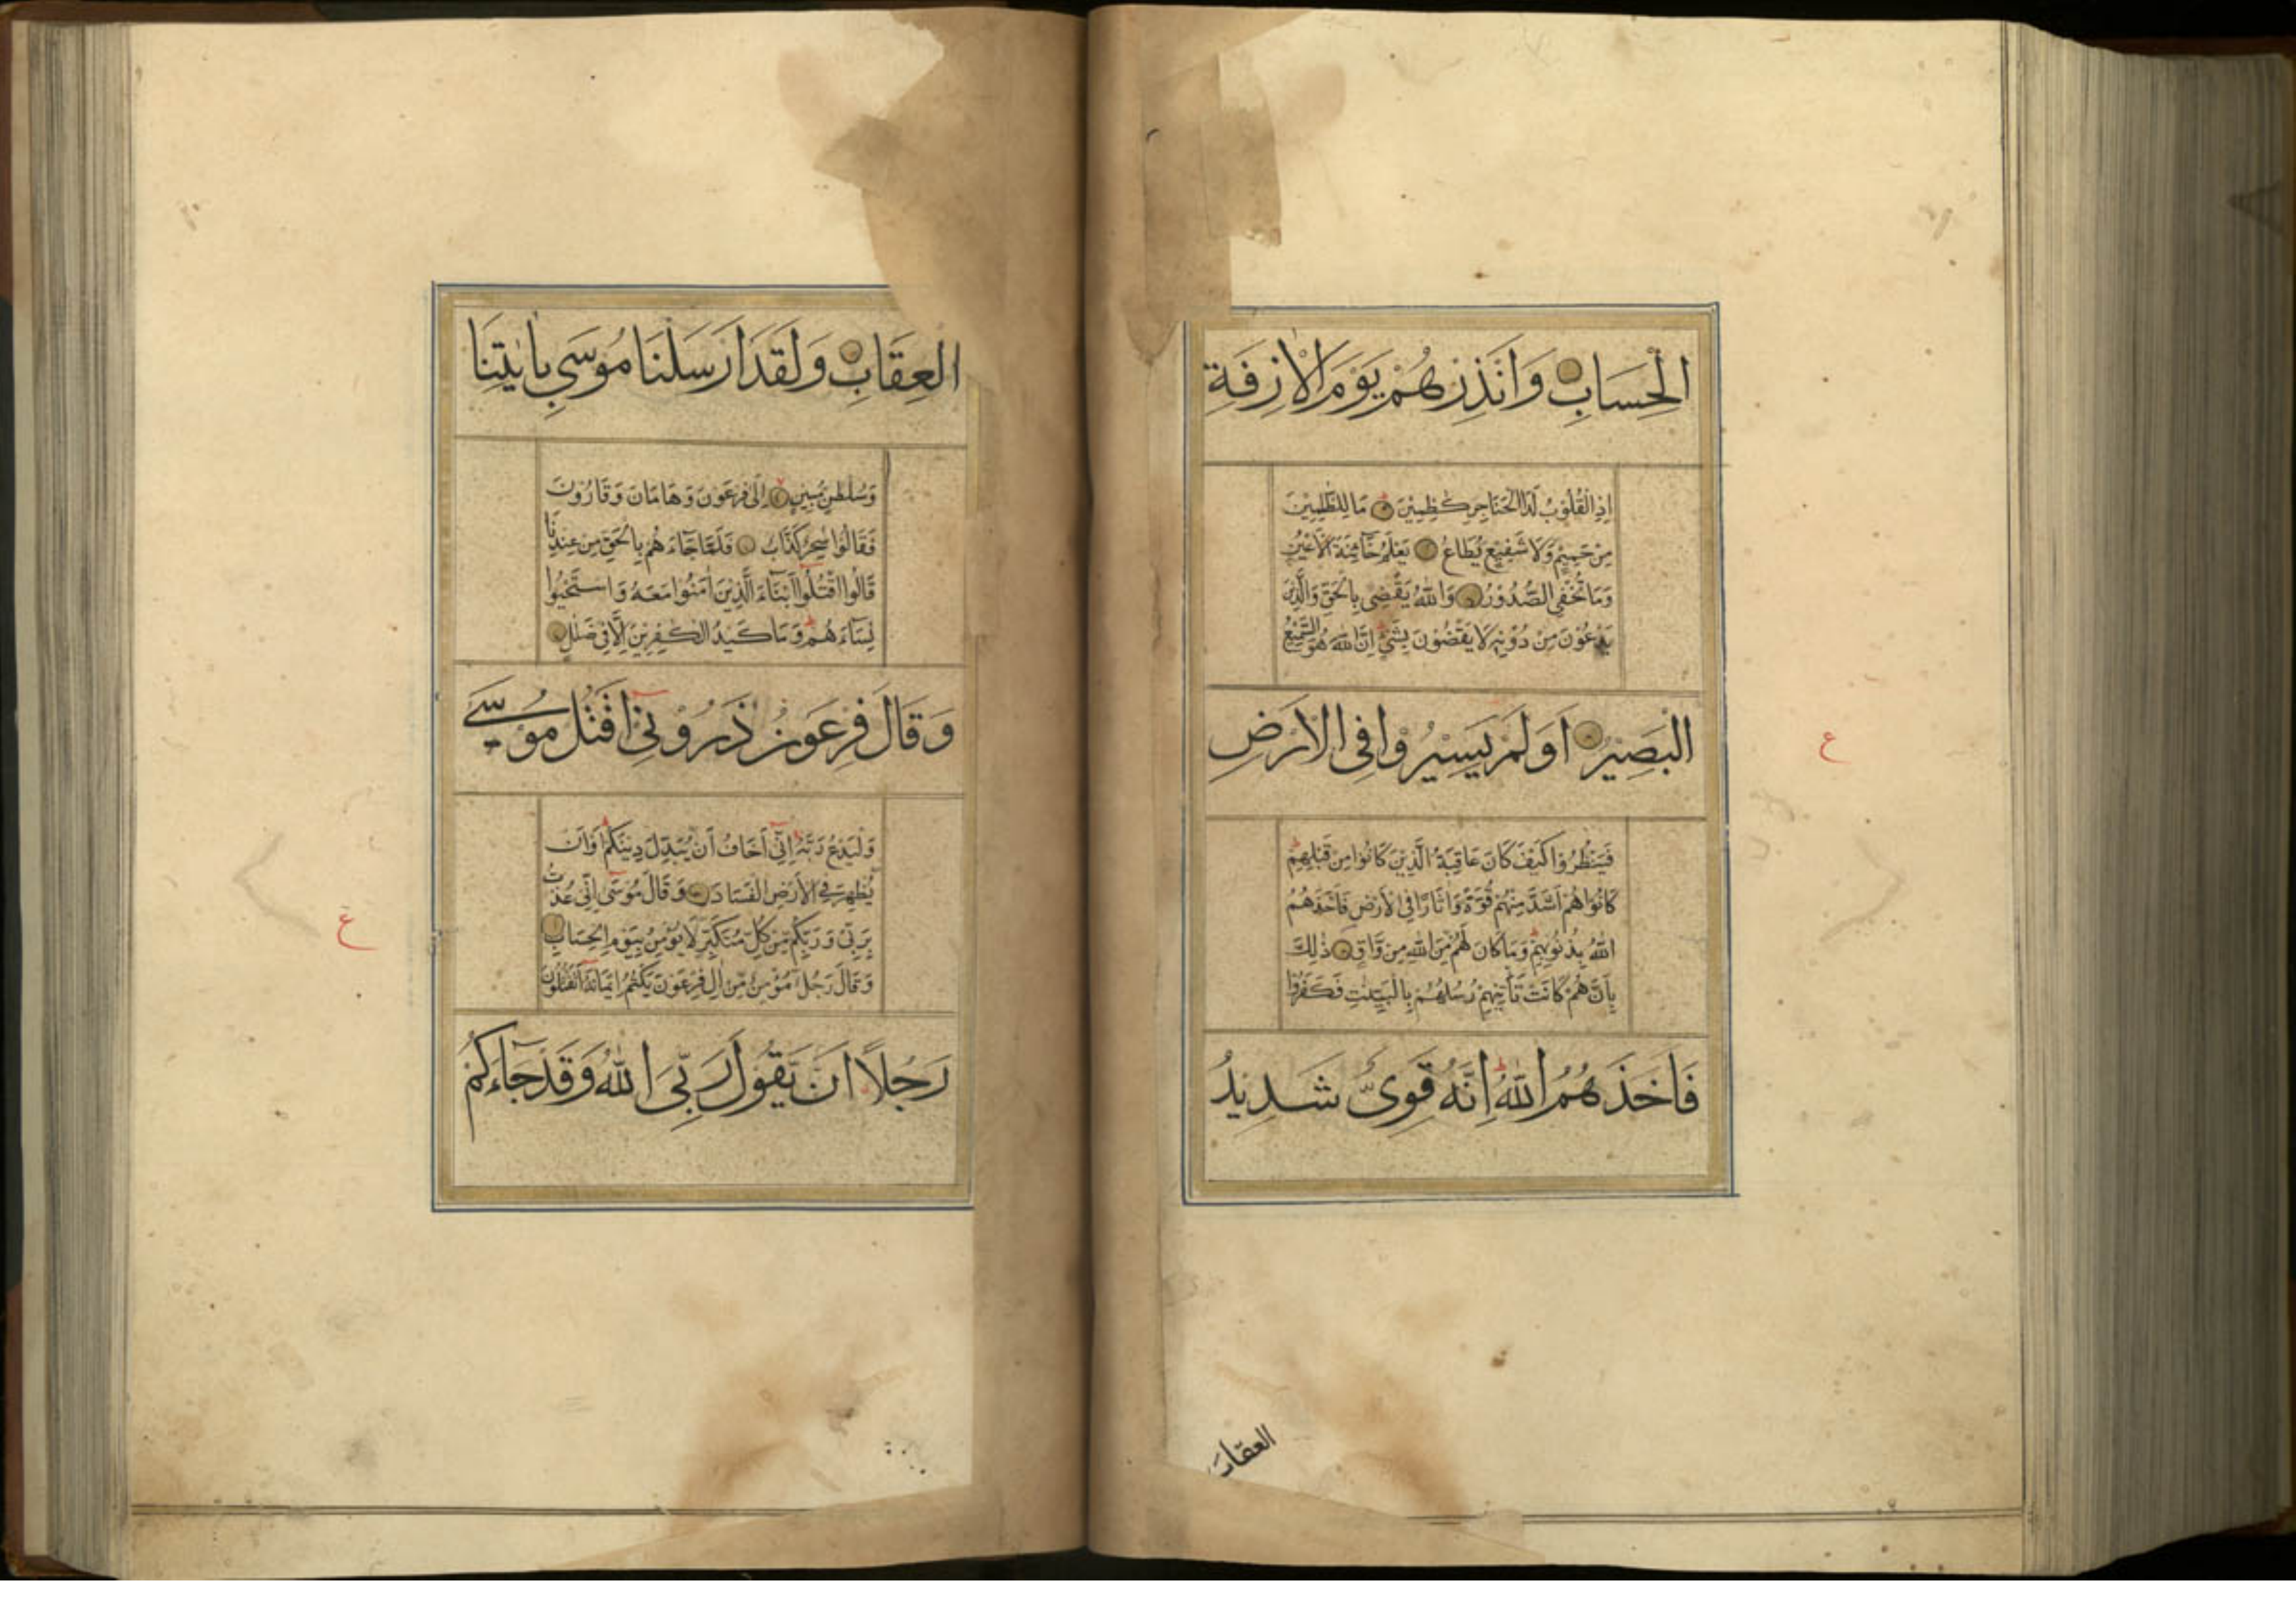 الْحِسَابِ وَاَنْذِرْهُمْ يَوْمَ الْاٰزِفَةِ
اِذِ الْقُلُوْبُ لَدَا الْحَنَاجِرِ كٰظِمِيْنَ مَا لِلظّٰلِمِيْنَ
مِنْ حَمِيْمٍ وَّلَا شَفِيْعٍ يُّطَاعُ يَعْلَمُ خَآئِنَةَ الْاَعْيُنِ
وَمَا تُخْفِى الصُّدُوْرُ وَاللّٰهُ يَقْضِىْ بِالْحَقِّ وَالَّذِيْنَ
يَدْعُوْنَ مِنْ دُوْنِهٖ لَا يَقْضُوْنَ بِشَىْءٍ اِنَّ اللّٰهَ هُوَ السَّمِيْعُ
الْبَصِيْرُ اَوَلَمْ يَسِيْرُوْا فِى الْاَرْضِ
ع
فَيَنْظُرُوْا كَيْفَ كَانَ عَاقِبَةُ الَّذِيْنَ كَانُوْا مِنْ قَبْلِهِمْ
كَانُوْا هُمْ اَشَدَّ مِنْهُمْ قُوَّةً وَّاٰثَارًا فِى الْاَرْضِ فَاَخَذَهُمُ
اللّٰهُ بِذُنُوْبِهِمْ وَمَا كَانَ لَهُمْ مِّنَ اللّٰهِ مِنْ وَّاقٍ ذٰلِكَ
بِاَنَّهُمْ كَانَتْ تَّاْتِيْهِمْ رُسُلُهُمْ بِالْبَيِّنٰتِ فَكَفَرُوْا
فَاَخَذَهُمُ اللّٰهُ اِنَّهٗ قَوِىٌّ شَدِيْدُ
العقاب
الْعِقَابِ وَلَقَدْ اَرْسَلْنَا مُوْسٰى بِاٰيٰتِنَا
وَسُلْطٰنٍ مُّبِيْنٍ اِلٰى فِرْعَوْنَ وَهَامَانَ وَقَارُوْنَ
فَقَالُوْا سٰحِرٌ كَذَّابٌ فَلَمَّا جَآءَهُمْ بِالْحَقِّ مِنْ عِنْدِنَا
قَالُوا اقْتُلُوْٓا اَبْنَآءَ الَّذِيْنَ اٰمَنُوْا مَعَهٗ وَاسْتَحْيُوْا
نِسَآءَهُمْ وَمَا كَيْدُ الْكٰفِرِيْنَ اِلَّا فِىْ ضَلٰلٍ
وَقَالَ فِرْعَوْنُ ذَرُوْنِىْٓ اَقْتُلْ مُوْسٰى
وَلْيَدْعُ رَبَّهٗ اِنِّىْٓ اَخَافُ اَنْ يُّبَدِّلَ دِيْنَكُمْ اَوْ اَنْ
يُّظْهِرَ فِى الْاَرْضِ الْفَسَادَ وَقَالَ مُوْسٰٓى اِنِّىْ عُذْتُ
ع
بِرَبِّىْ وَرَبِّكُمْ مِّنْ كُلِّ مُتَكَبِّرٍ لَّا يُؤْمِنُ بِيَوْمِ الْحِسَابِ
وَقَالَ رَجُلٌ مُّؤْمِنٌ مِّنْ اٰلِ فِرْعَوْنَ يَكْتُمُ اِيْمَانَهٗٓ اَتَقْتُلُوْنَ
رَجُلًا اَنْ يَّقُوْلَ رَبِّىَ اللّٰهُ وَقَدْ جَآءَكُمْ